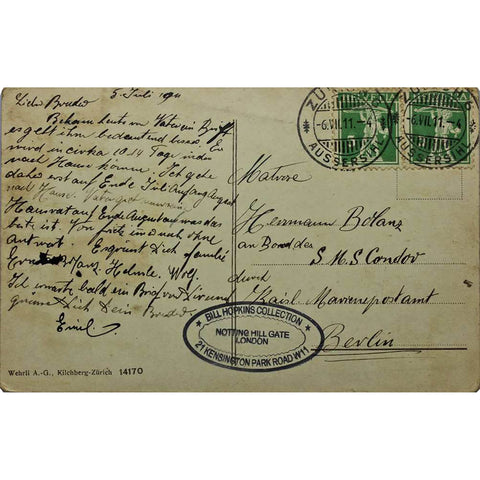 5. Juli 1911
Lieber Bruder
Bekam heute von Vater ein Brief
es geht ihm bedeutend besser. Er
wird in cirka 10-14 Tage wieder
nach Hause können. Ich gehe
daher erst auf Ende Juli Anfang August
nach Hause. Vater
auf Ende August was das
beste ist. Von
antwort. Es grüsst Dich familie
Wolf.
Ich warte bald ein Brief von Dir und
grüsse Dich Dein Bruder.
Emil.
Wehrli A.-G., Kilchberg-Zürich 14170
ZÜRICH 6
-6.VII.11.-4
AUSSERSIHL
ZÜRICH 6
-6.VII.11.-4
AUSSERSIHL
Matrose
Hermann Bolanz
an Bord des
S.M.S Condor
durch
Kaisl. Marinepostamt
Berlin
BILL HOPKINS COLLECTION
NOTTING HILL GATE
LONDON
21 KENSINGTON PARK ROAD W11